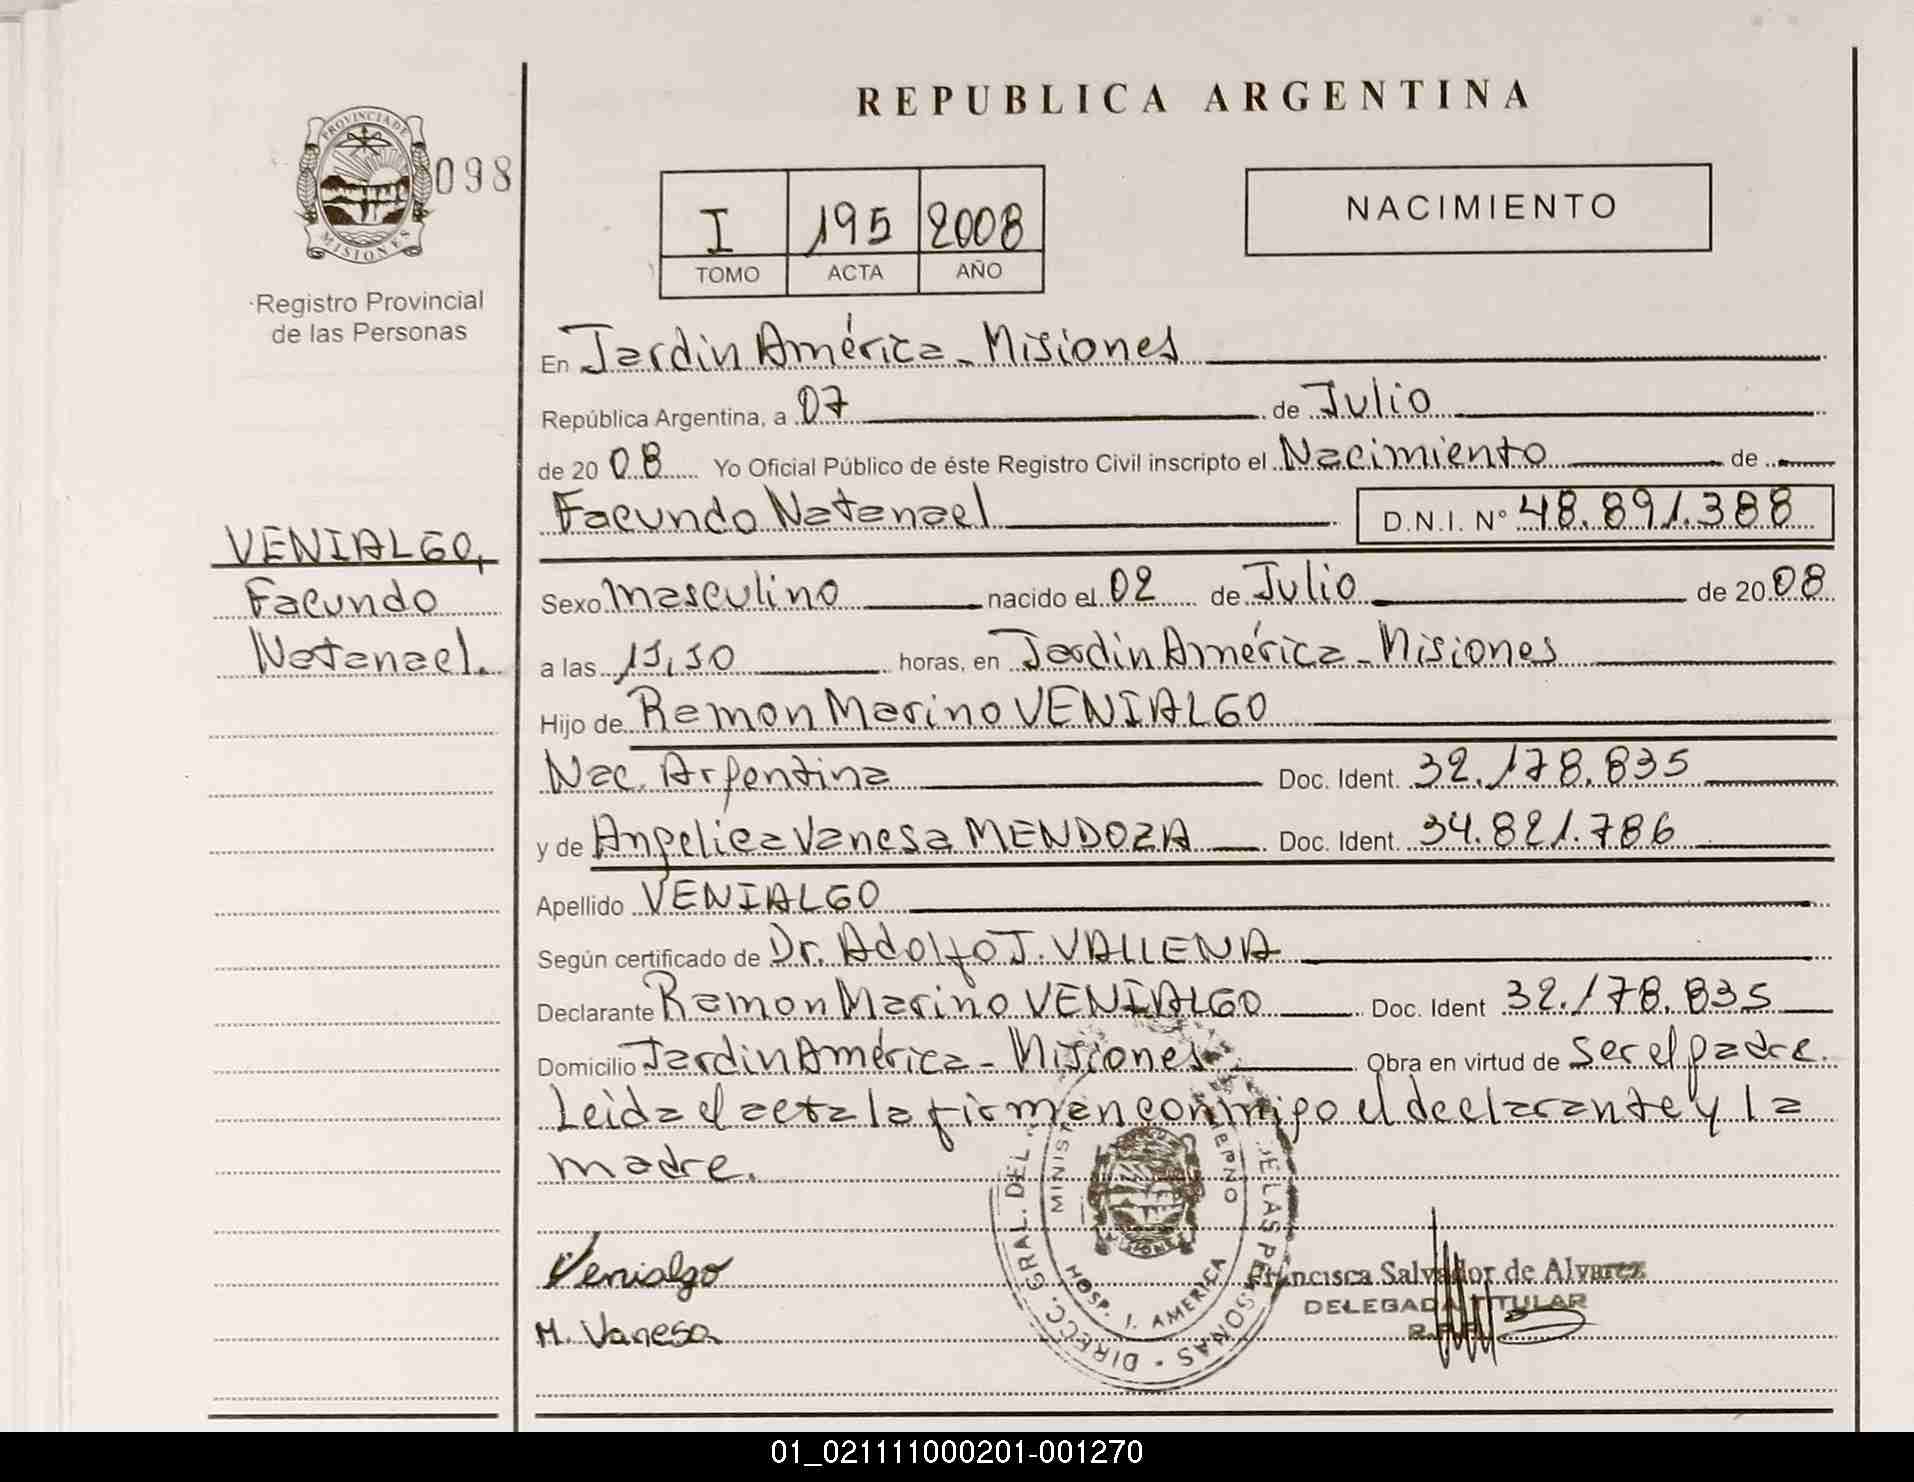 REPUBLICA ARGENTINA
PROVINCIA DE
MISIONES
098
Registro Provincial
de las Personas
I 195 2008
TOMO ACTA AÑO
NACIMIENTO
En Jardin América - Misiones
República Argentina, a 07 de Julio
de 2008 Yo Oficial Público de éste Registro Civil inscripto el Nacimiento de
Facundo Natanael D.N.I. Nº 48.891.388
VENIALGO,
Facundo
Natanael.
Sexo Masculino nacido el 02 de Julio de 2008
a las horas, en Jardin América - Misiones
Hijo de Ramon Marino VENIALGO
Nac. Argentina Doc. Ident. 32.178.835
y de Angelica Vanesa MENDOZA Doc. Ident. 34.821.786
Apellido VENIALGO
Según certificado de Dr. Adolfo J. VALLENA
Declarante Ramon Marino VENIALGO Doc. Ident 32.178.835
Domicilio Jardin América - Misiones Obra en virtud de ser el padre.
Leida el acta la firman conmigo el declarante y la
madre.
DIRECC. GRAL. DEL DE LAS PERSONAS
HOSP. J. AMERICA
Venialgo
M. Vanesa
Francisca Salvador de Alvarez
DELEGADA TITULAR
R.P.P.
01_021111000201-001270